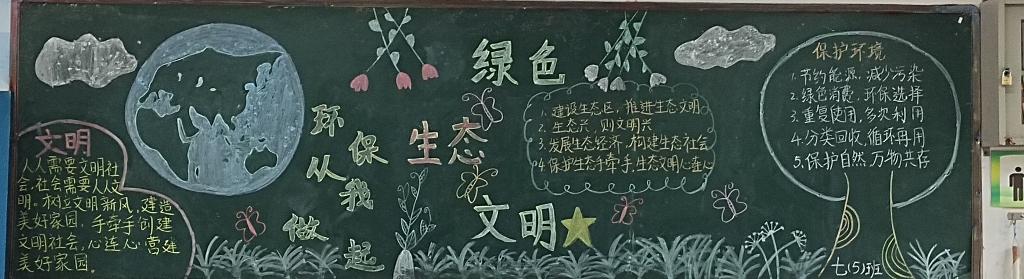 文明
人人需要文明社
会,社会需要人文
明,树立文明新风,建造
美好家园,手牵手创建
文明社会,心连心营造
美好家园。
环保
从我
做起
绿色
生态
文明
1.建设生态区,推进生态文明
2.生态兴,则文明兴
3.发展生态经济,构建生态社会
4.保护生态手牵手,生态文明心连心
保护环境
1.节约能源,减少污染
2.绿色消费,环保选择
3.重复使用,多次利用
4.分类回收,循环再用
5.保护自然,万物共存
七(5)班